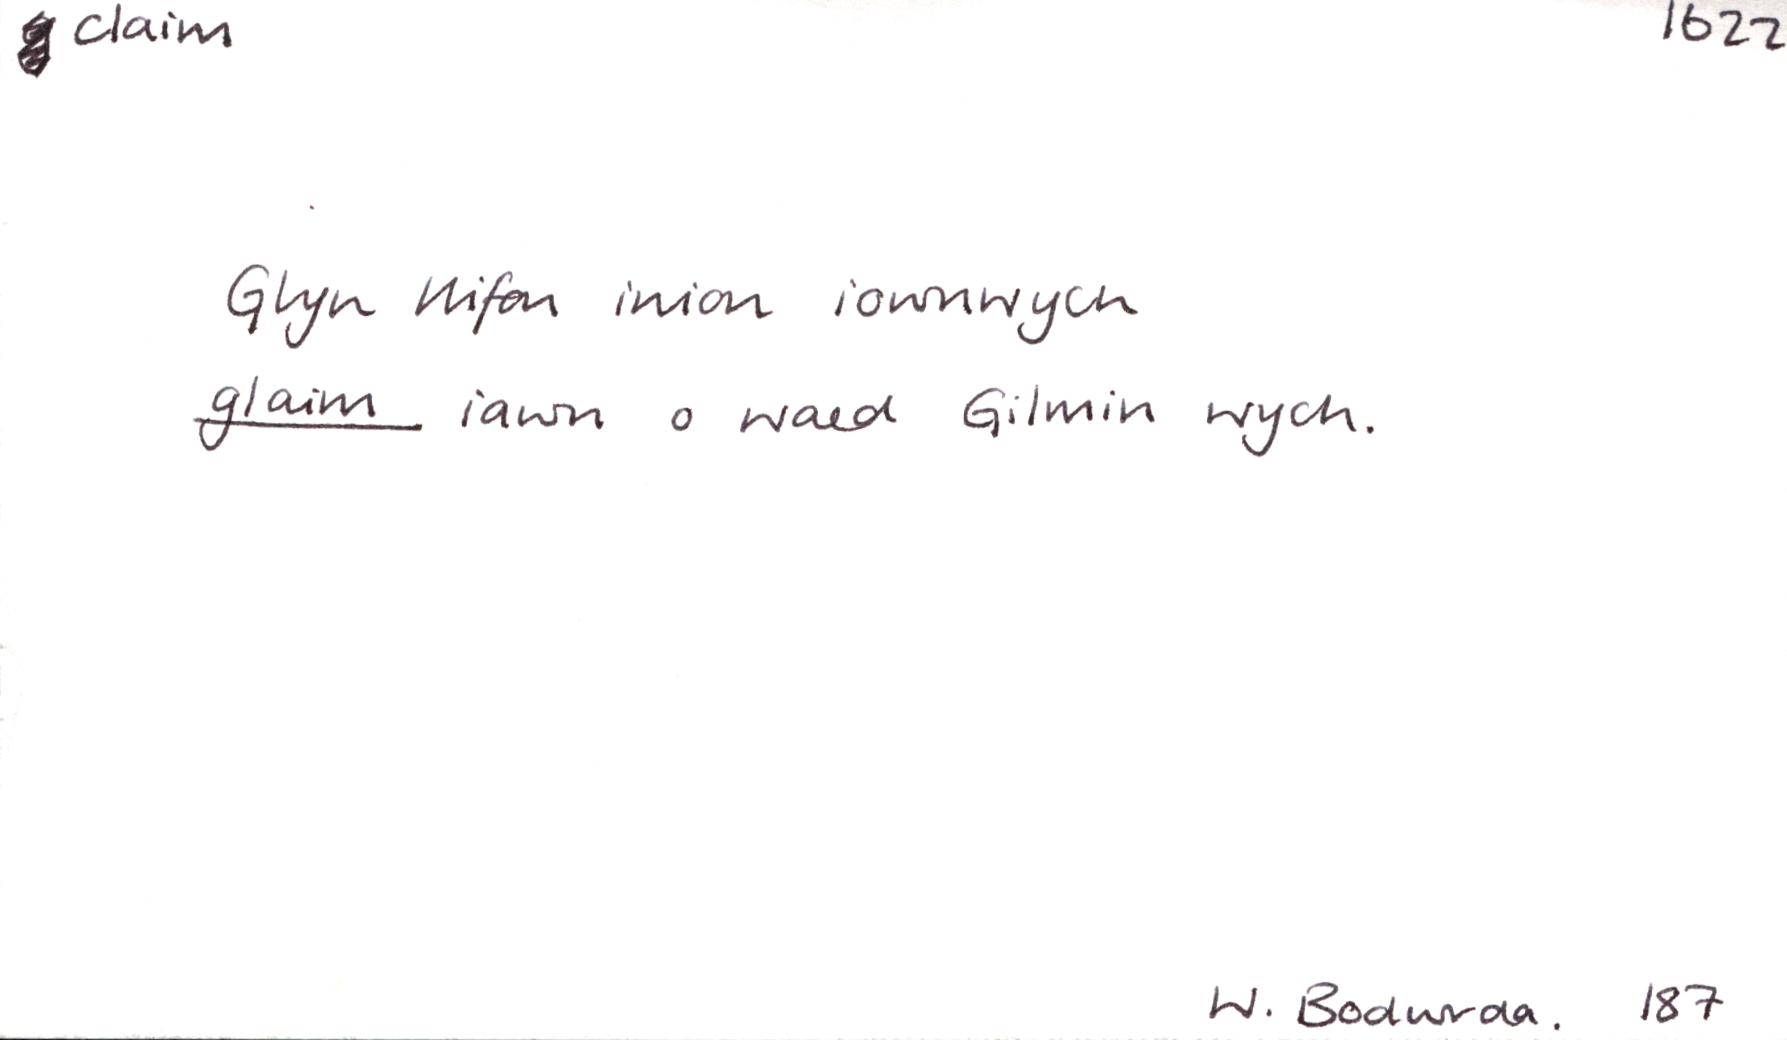 claim 1622
Glyn llifon inion iownwych
glaim iawn o waed Gilmin wych.
W. Bodwrda. 187